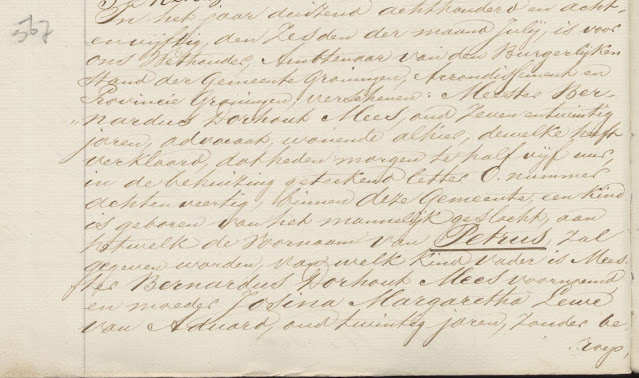 567
In het jaar duizend achthonderd en acht-
en vijftig, den Zesden der maand Julij, is voor
ons Wethouder, Ambtenaar van den Burgerlijken
Stand der Gemeente Groningen, Arrondissement en
Provincie Groningen, verschenen: Meester Ber-
nardus Dorhout Mees, oud Zeven en twintig
jaren, advocaat, wonende alhier, dewelke heeft
verklaard, dat heden morgen te half vijf uur,
in de behuizing geteekend letter O. nummer
achten veertig, binnen deze Gemeente, een kind
is geboren van het mannelijk geslacht, aan
hetwelk de Voornaam van Petrus, Zal
gegeven worden, van welk kind vader is Mees-
ter Bernardus Dorhout Mees voornoemd
en moeder Josina Margaretha Lewe
van Aduard, oud twintig jaren, Zonder be-
roep,